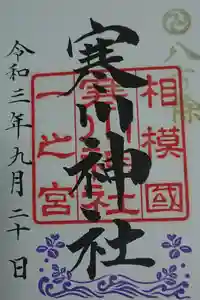 八方除
相模國
寒川神社
一之宮
寒川神社
令和三年九月二十日